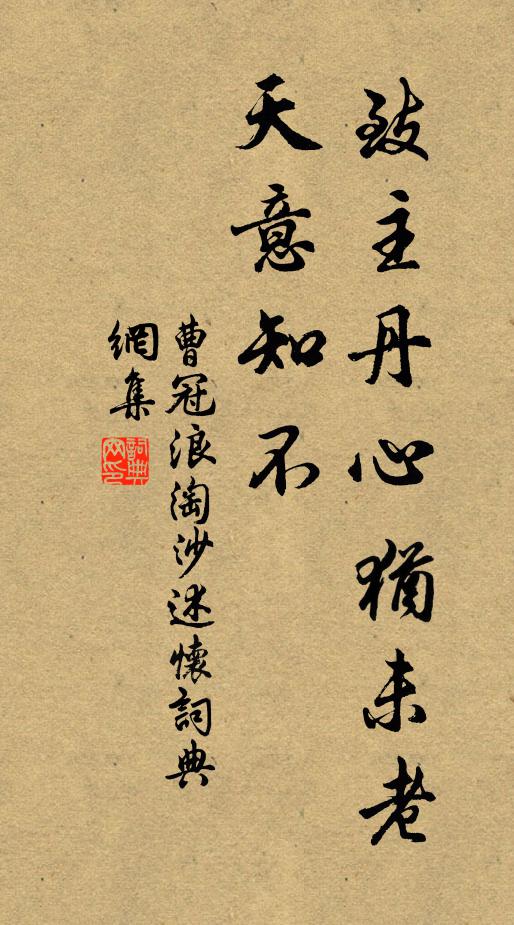 致主丹心猶未老
天意知不
曹冠浪淘沙述懷詞典
網集
詞典網印